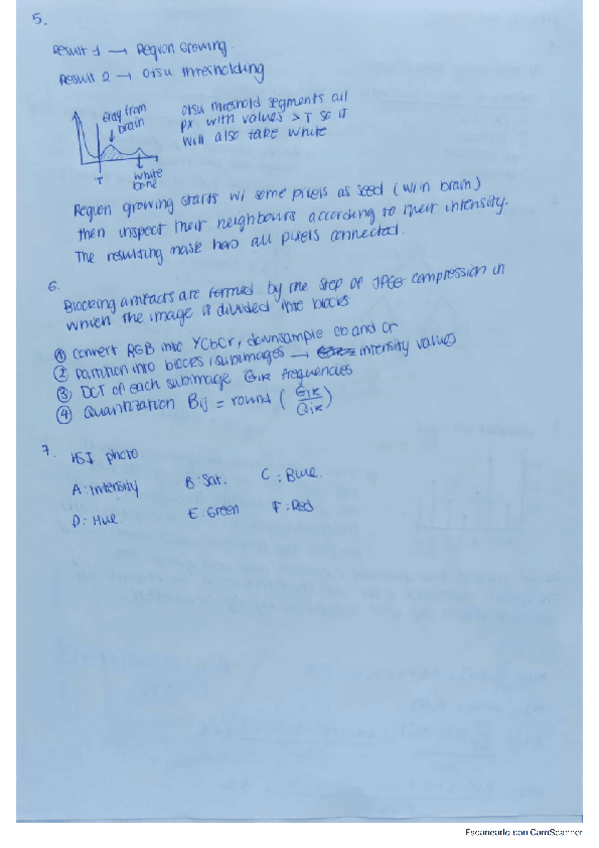 5.
Result 1 → Region Growing
Result 2 → Otsu thresholding
Gray from brain
T
white bone
Otsu threshold segments all
px with values > T so it
will also take white.
Region growing starts w/ some pixels as seed (w/in brain)
then inspect their neighbours according to their intensity.
The resulting mask has all pixels connected.
6.
Blocking artifacts are formed by the step of JPEG compression in
which the image is divided into blocks
① convert RGB into YCbCr, downsample Cb and Cr
② Partition into blocks / subimages → intensity values
③ DCT of each subimage Gik frequencies
④ Quantization Bij = round (Gik / Qik)
7. HSI photo
A: Intensity B: Sat. C: Blue.
D: Hue E: Green F: Red
Escaneado con CamScanner